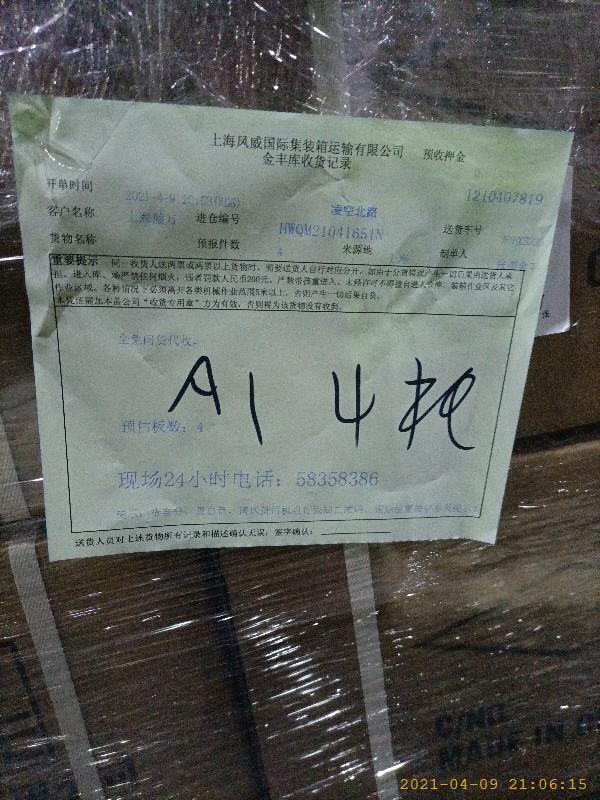 上海风威国际集装箱运输有限公司 预收押金
金丰库收货记录
开单时间 2021-4-9 凌空北路 1210407819
客户名称 进仓编号 HWQM21041651N 送货车号
货物名称 预报件数 4 来源地 上海 制单人
重要提示 同一收货人送两票或两票以上货物时,需要送货人自行对应分开,如由于分货错或产生一切后果由送货人承
担。进入库、场严禁任何烟火,违者罚款人民币200元。严禁带孩童进入,未经许可不得擅自进入仓库、装箱作业区及其它
作业区域。各种情况下必须离开各类机械作业范围5米以上,否则产生一切后果自负。
本凭证需加本盖公司“收货专用章”方为有效,否则视为该货物没有收到。
A1 4托
预估板数:4
现场24小时电话:58358386
送货人员对上述货物所有记录和描述确认无误,签字确认:
C/NO.
MADE IN
2021-04-09 21:06:15